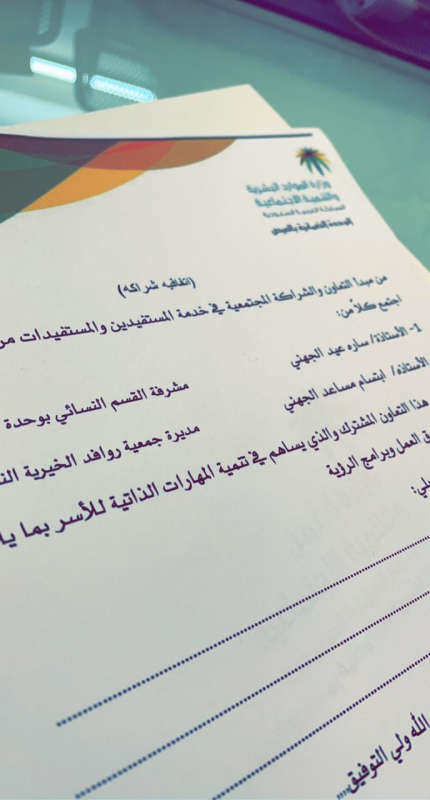 وزارة الموارد البشرية
والتنمية الاجتماعية
المملكة العربية السعودية
الوحدة الضمانية بالعيص
(اتفاقيه شراكه)
من مبدأ التعاون والشراكة المجتمعية في خدمة المستفيدين والمستفيدات من
اجتمع كلاً من:
1- الأستاذة/ ساره عيد الجهني
مشرفة القسم النسائي بوحدة
الأستاذة/ ابتسام مساعد الجهني
مديرة جمعية روافد الخيرية
هذا التعاون المشترك والذي يساهم في تنمية المهارات الذاتية للأسر بما
العمل وبرامج الرؤية
الله ولي التوفيق,,,